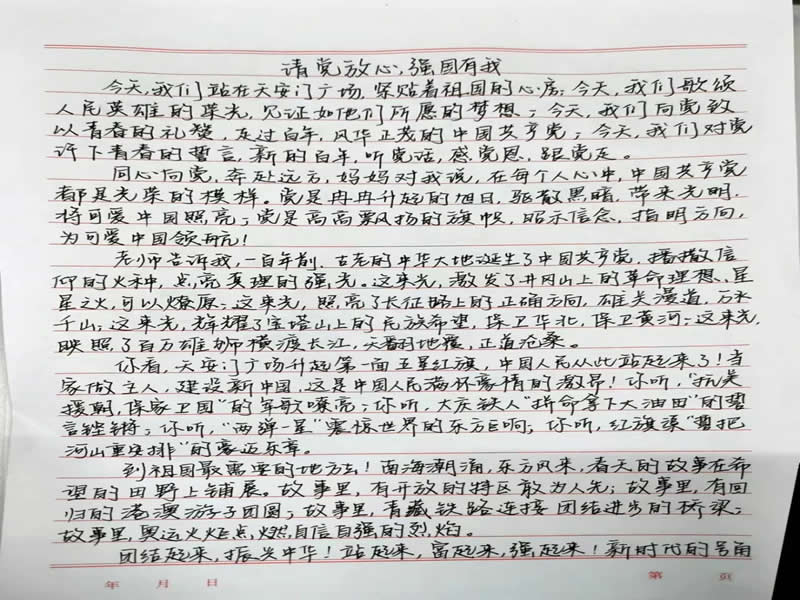 请党放心,强国有我
今天,我们站在天安门广场,紧贴着祖国的心房;今天,我们歌颂
人民英雄的荣光,见证如他们所愿的梦想;今天,我们向党致
以青春的礼赞,走过百年,风华正茂的中国共产党;今天,我们对党
许下青春的誓言,新的百年,听党话,感党恩,跟党走。
同心向党,奔赴远方,妈妈对我说,在每个人心中,中国共产党
都是光荣的模样。党是冉冉升起的旭日,驱散黑暗,带来光明,
将可爱中国照亮;党是高高飘扬的旗帜,昭示信念,指明方向,
为可爱中国领航!
老师告诉我,一百年前,古老的中华大地诞生了中国共产党,播撒信
仰的火种,点亮真理的强光。这束光,激发了井冈山上的革命理想、星
星之火,可以燎原;这束光,照亮了长征路上的正确方向,雄关漫道,万水
千山;这束光,辉耀了宝塔山上的民族希望,保卫华北,保卫黄河;这束光,
映照了百万雄狮横渡长江,天翻地覆,正道沧桑。
你看,天安门广场升起第一面五星红旗,中国人民从此站起来了!当
家做主人,建设新中国,这是中国人民满怀豪情的激昂!你听,"抗美
援朝,保家卫国"的军歌嘹亮;你听,大庆铁人"拼命拿下大油田"的誓
言铿锵;你听,"两弹一星"震惊世界的东方巨响;你听,红旗渠"誓把
河山重安排"的豪迈乐章。
到祖国最需要的地方去!南海潮涌,东方风来,春天的故事在希
望的田野上铺展。故事里,有开放的特区敢为人先;故事里,有回
归的港澳游子团圆;故事里,青藏铁路连接团结进步的桥梁;
故事里,奥运火炬点燃自信自强的烈焰。
团结起来,振兴中华!站起来,富起来,强起来!新时代的号角
年 月 日
第 页